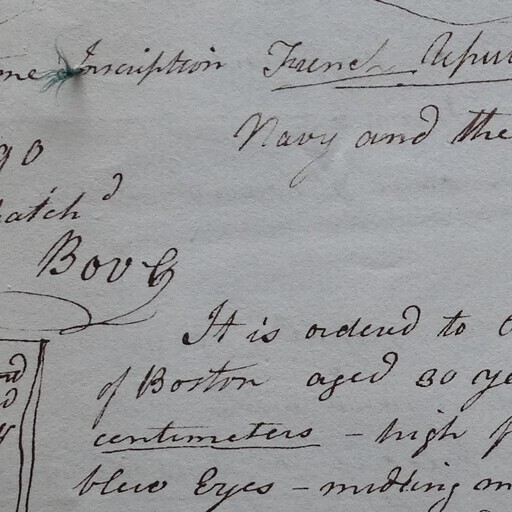 Inscription French
Navy and the
90
Bov
It is ordered to
of Boston aged 30
centimeters - high
blew Eyes - midling